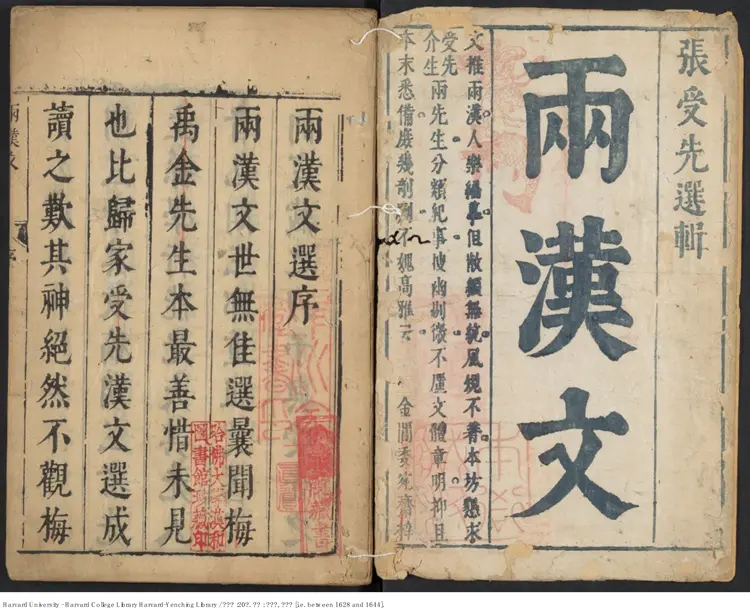 張受先選輯
兩漢文
文推兩漢人樂編摩但散線無統風規不著本坊懇求
受先
介生
兩先生分類紀事使幽劌微不厘文體章明抑且
本末悉備庶幾剞劂不媿高雅云 金閶委宛齋梓
兩漢文選序
兩漢文世無佳選曩聞梅
禹金先生本最善惜未見
也比歸家受先漢文選成
讀之歎其神絕然不觀梅
兩漢文 序
哈佛大學漢和
圖書館珍藏印
Harvard University - Harvard College Library Harvard-Yenching Library / ??? :20?. ?? : ???, ??? [i.e. between 1628 and 1644].